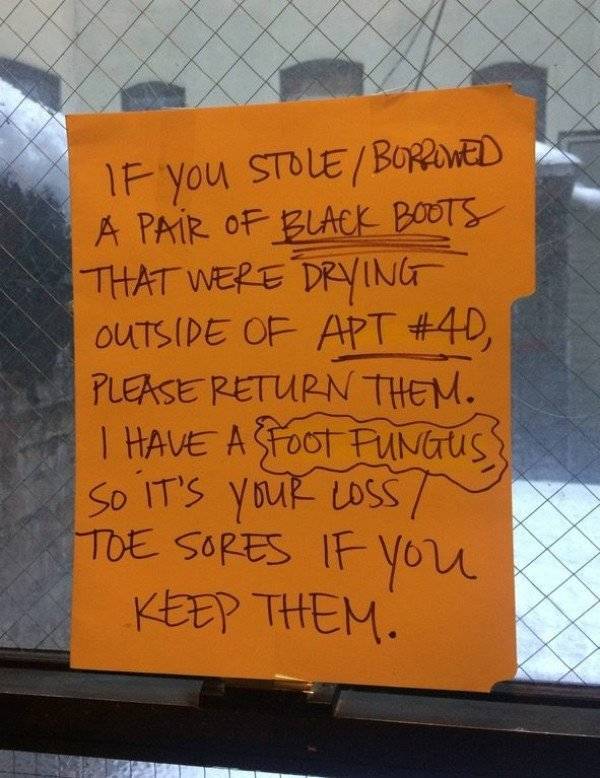 IF YOU STOLE / BORROWED
A PAIR OF BLACK BOOTS
THAT WERE DRYING
OUTSIDE OF APT #4D,
PLEASE RETURN THEM.
I HAVE A FOOT FUNGUS
SO IT'S YOUR LOSS /
TOE SORES IF YOU
KEEP THEM.